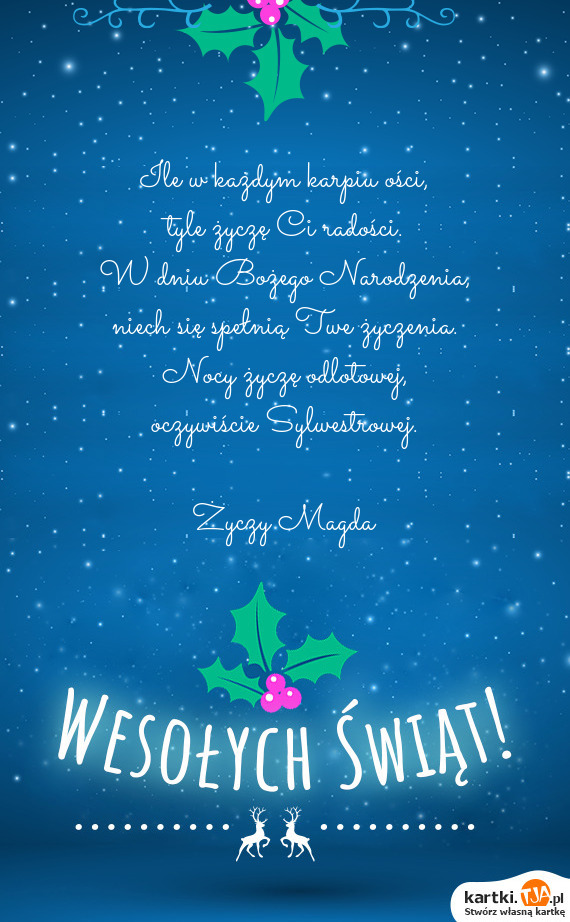 Ile w każdym karpiu ości,
tyle życzę Ci radości.
W dniu Bożego Narodzenia,
niech się spełnią Twe życzenia.
Nocy życzę odlotowej,
oczywiście Sylwestrowej.
Życzy Magda
Wesołych Świąt!
kartki.TJA.pl
Stwórz własną kartkę